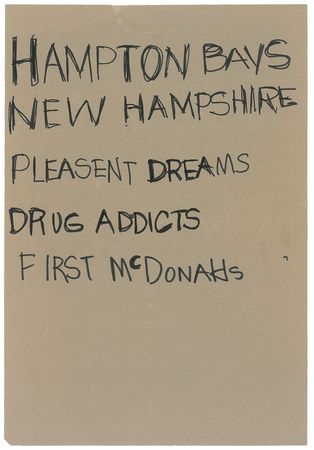 HAMPTON BAYS
NEW HAMPSHIRE
PLEASENT DREAMS
DRUG ADDICTS
FIRST McDONAlds